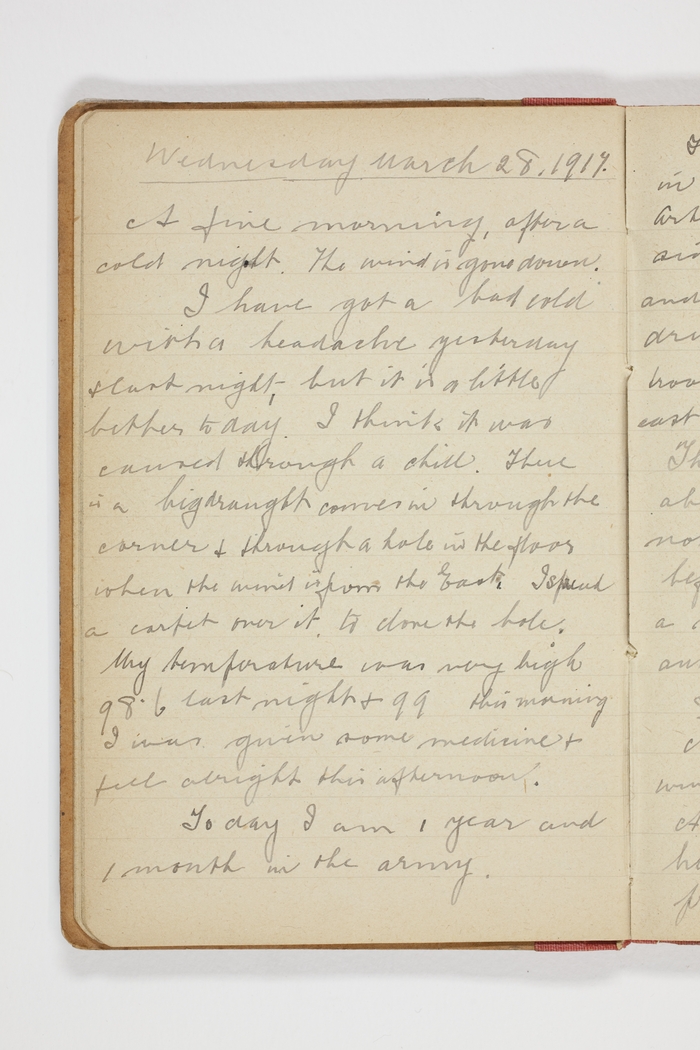 Wednesday March 28, 1917.
A fine morning, after a
cold night. The wind is gone down.
I have got a bad cold
with a headache yesterday
& last night, but it is a little
better today. I think it was
caused through a chill. There
is a big draught comes in through the
corner & through a hole in the floor
when the wind is from the East. I spread
a carpet over it, to close the hole.
My temperature was very high
98.6 last night & 99 this morning
I was given some medicine &
feel alright this afternoon.
To day I am 1 year and
1 month in the army.
in
and
a